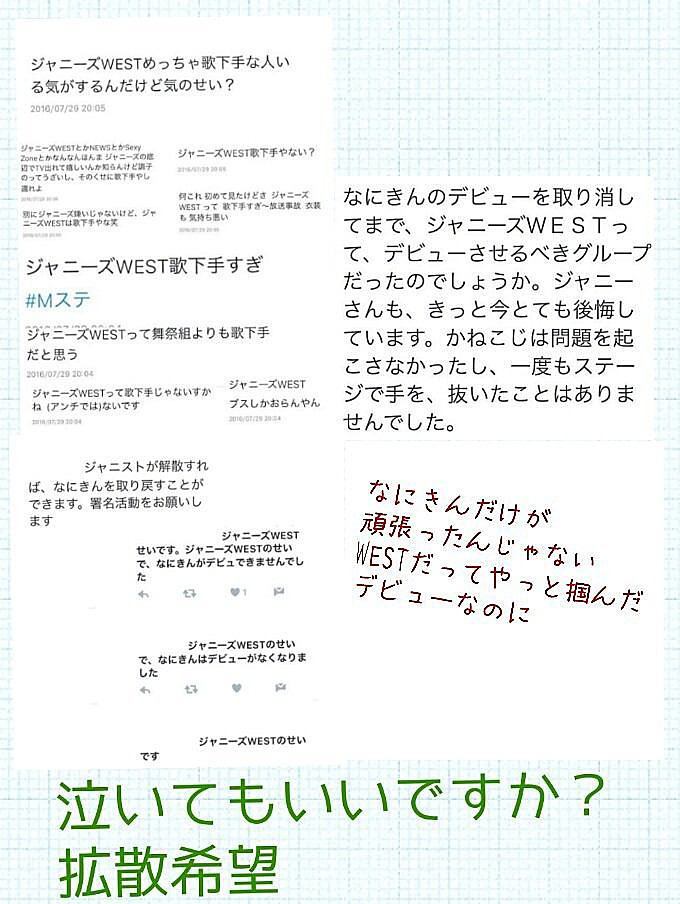 ジャニーズWESTめっちゃ歌下手な人い
る気がするんだけど気のせい？
2016/07/29 20:05
ジャニーズWESTとかNEWSとかSexy
Zoneとかなんなんほんま ジャニーズの底
辺でTV出れて嬉しいんか知らんけど調子
のってうざいし、そのくせに歌下手やし
還れよ
ジャニーズWEST歌下手やない？
2016/07/29 20:05
別にジャニーズ嫌いじゃないけど、ジャ
ニーズWESTは歌下手やな笑
何これ 初めて見たけどさ ジャニーズ
WEST って 歌下手すぎ〜放送事故 衣装
も 気持ち悪い
ジャニーズWEST歌下手すぎ
#Mステ
ジャニーズWESTって舞祭組よりも歌下手
だと思う
2016/07/29 20:04
ジャニーズWESTって歌下手じゃないすか
ね (アンチでは)ないです
2016/07/29 20:04
ジャニーズWEST
ブスしかおらんやん
2016/07/29 20:04
ジャニストが解散すれ
ば、なにきんを取り戻すことが
できます。署名活動をお願いし
ます
ジャニーズWEST
せいです。ジャニーズWESTのせい
で、なにきんがデビュできませんでし
た
1
ジャニーズWESTのせい
で、なにきんはデビューがなくなりま
した
ジャニーズWESTのせい
です
なにきんのデビューを取り消し
てまで、ジャニーズＷＥＳＴっ
て、デビューさせるべきグループ
だったのでしょうか。ジャニー
さんも、きっと今とても後悔し
ています。かねこじは問題を起
こさなかったし、一度もステー
ジで手を、抜いたことはありま
せんでした。
なにきんだけが
頑張ったんじゃない
WESTだってやっと掴んだ
デビューなのに
泣いてもいいですか？
拡散希望